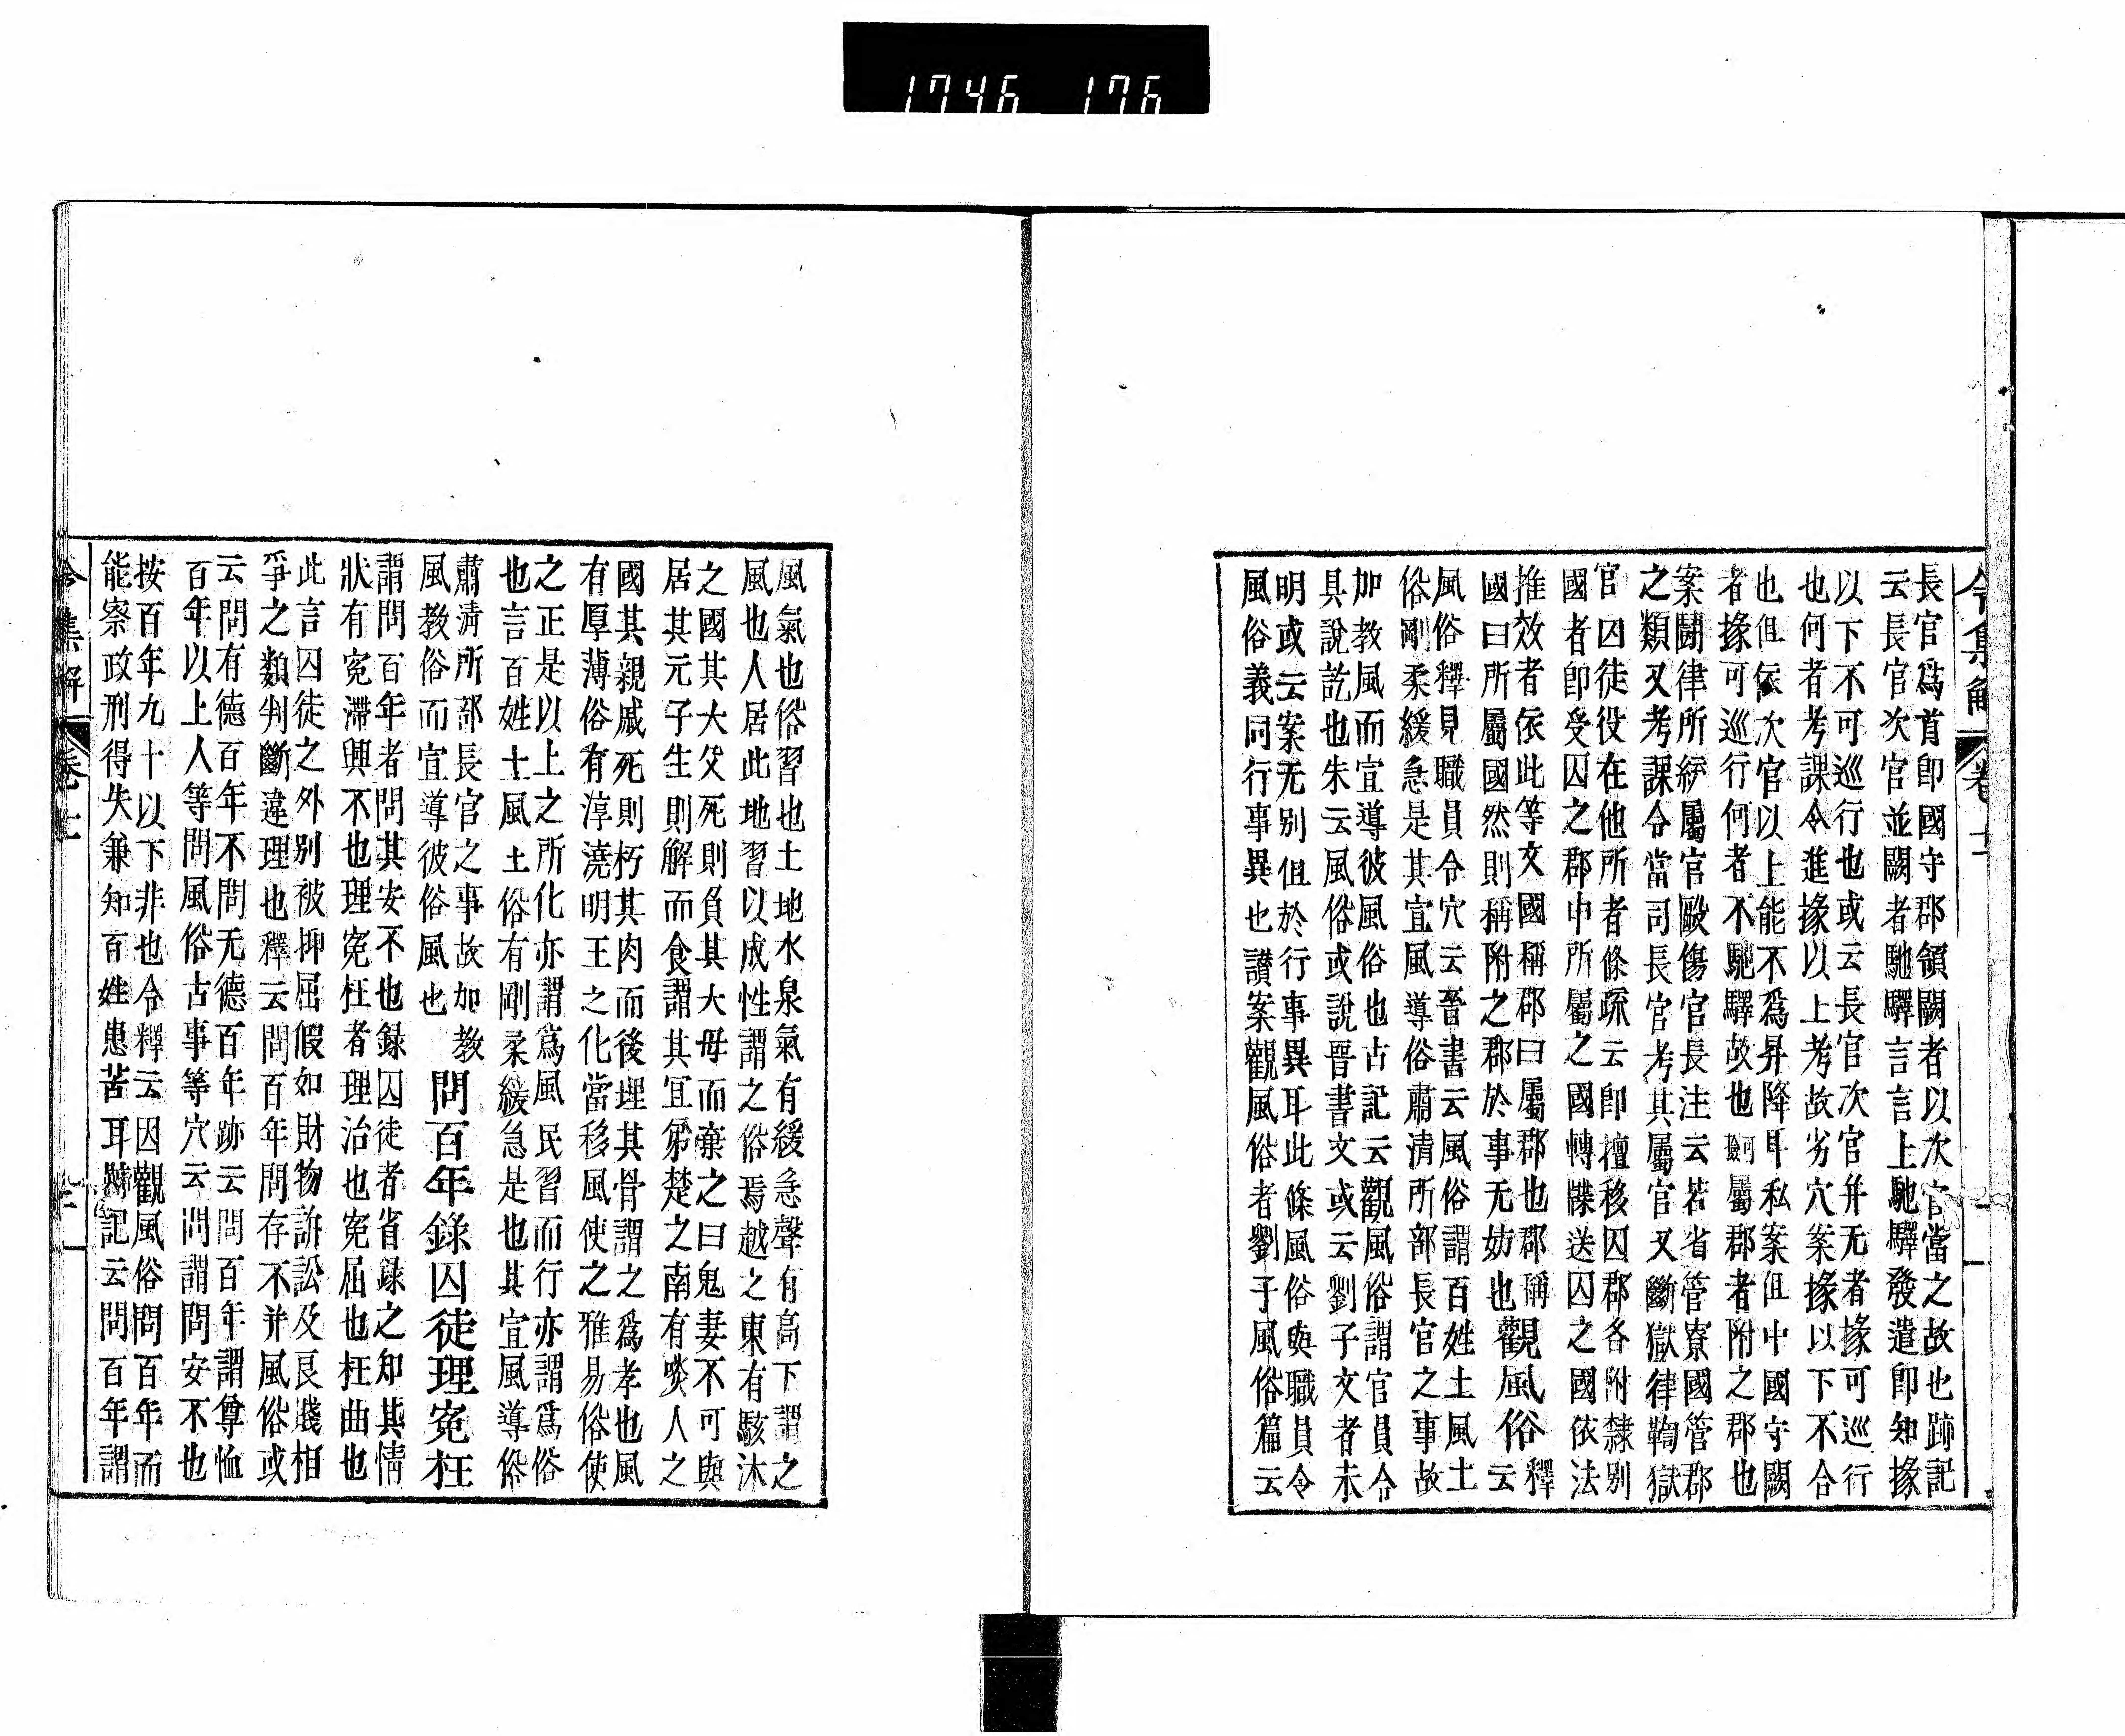 1746 176
令集解 卷十
長官爲首即國守郡領闕者以次官當之故也跡記
云長官次官並闕者馳驛言言上馳驛發遣即知掾
以下不可巡行也或云長官次官并无者掾可巡行
也何者考課令進掾以上考故劣穴案掾以下不合
也但依次官以上能不爲昇降耳私案但中國守闕
者掾可巡行何者不馳驛故也 屬郡者附之郡也
案鬪律所綂屬官毆傷官長注云若省管寮國管郡
之類又考課令當司長官考其屬官又斷獄律鞫獄
官囚徒役在他所者條疏云即擅移囚郡各附隸別
國者即受囚之郡中所屬之國轉牒送囚之國依法
推效者依此等文國稱郡曰屬郡也郡稱
國曰所屬國然則稱附之郡於事无妨也
觀風俗
釋
云
風俗釋見職員令穴云晉書云風俗謂百姓土風土
俗剛柔緩急是其宜風導俗肅清所部長官之事故
加教風而宜導彼風俗也古記云觀風俗謂官員令
具說訖也朱云風俗或說晉書文或云劉子文者未
明或云案无別但於行事異耳此條風俗與職員令
風俗義同行事異也讃案觀風俗者劉子風俗篇云
風氣也俗習也土地水泉氣有緩急聲有高下謂之
風也人居此地習以成性謂之俗焉越之東有駭沐
之國其大父死則負其大母而棄之曰鬼妻不可與
居其元子生則解而食謂其冝弟楚之南有啖人之
國其親戚死則朽其肉而後埋其骨謂之爲孝也風
有厚薄俗有淳澆明王之化當移風使之雅易俗使
之正是以上之所化亦謂爲風民習而行亦謂爲俗
也言百姓土風土俗有剛柔緩急是也其宜風導俗
肅淸所部長官之事故加教
風教俗而宜導彼俗風也
問百年錄囚徒理寃枉
謂問百年者問其安不也録囚徒者省録之知其情
狀有寃滯與不也理寃枉者理治也寃屈也枉曲也
此言囚徒之外別被抑屈假如財物訴訟及良賤相
爭之類判斷違理也釋云問百年問存不并風俗或
云問有德百年不問无德百年跡云問百年謂尊恤
百年以上人等問風俗古事等穴云問謂問安不也
按百年九十以下非也令釋云因觀風俗問百年而
能察政刑得失兼知百姓患苦耳 記云問百年謂
令集解 卷十